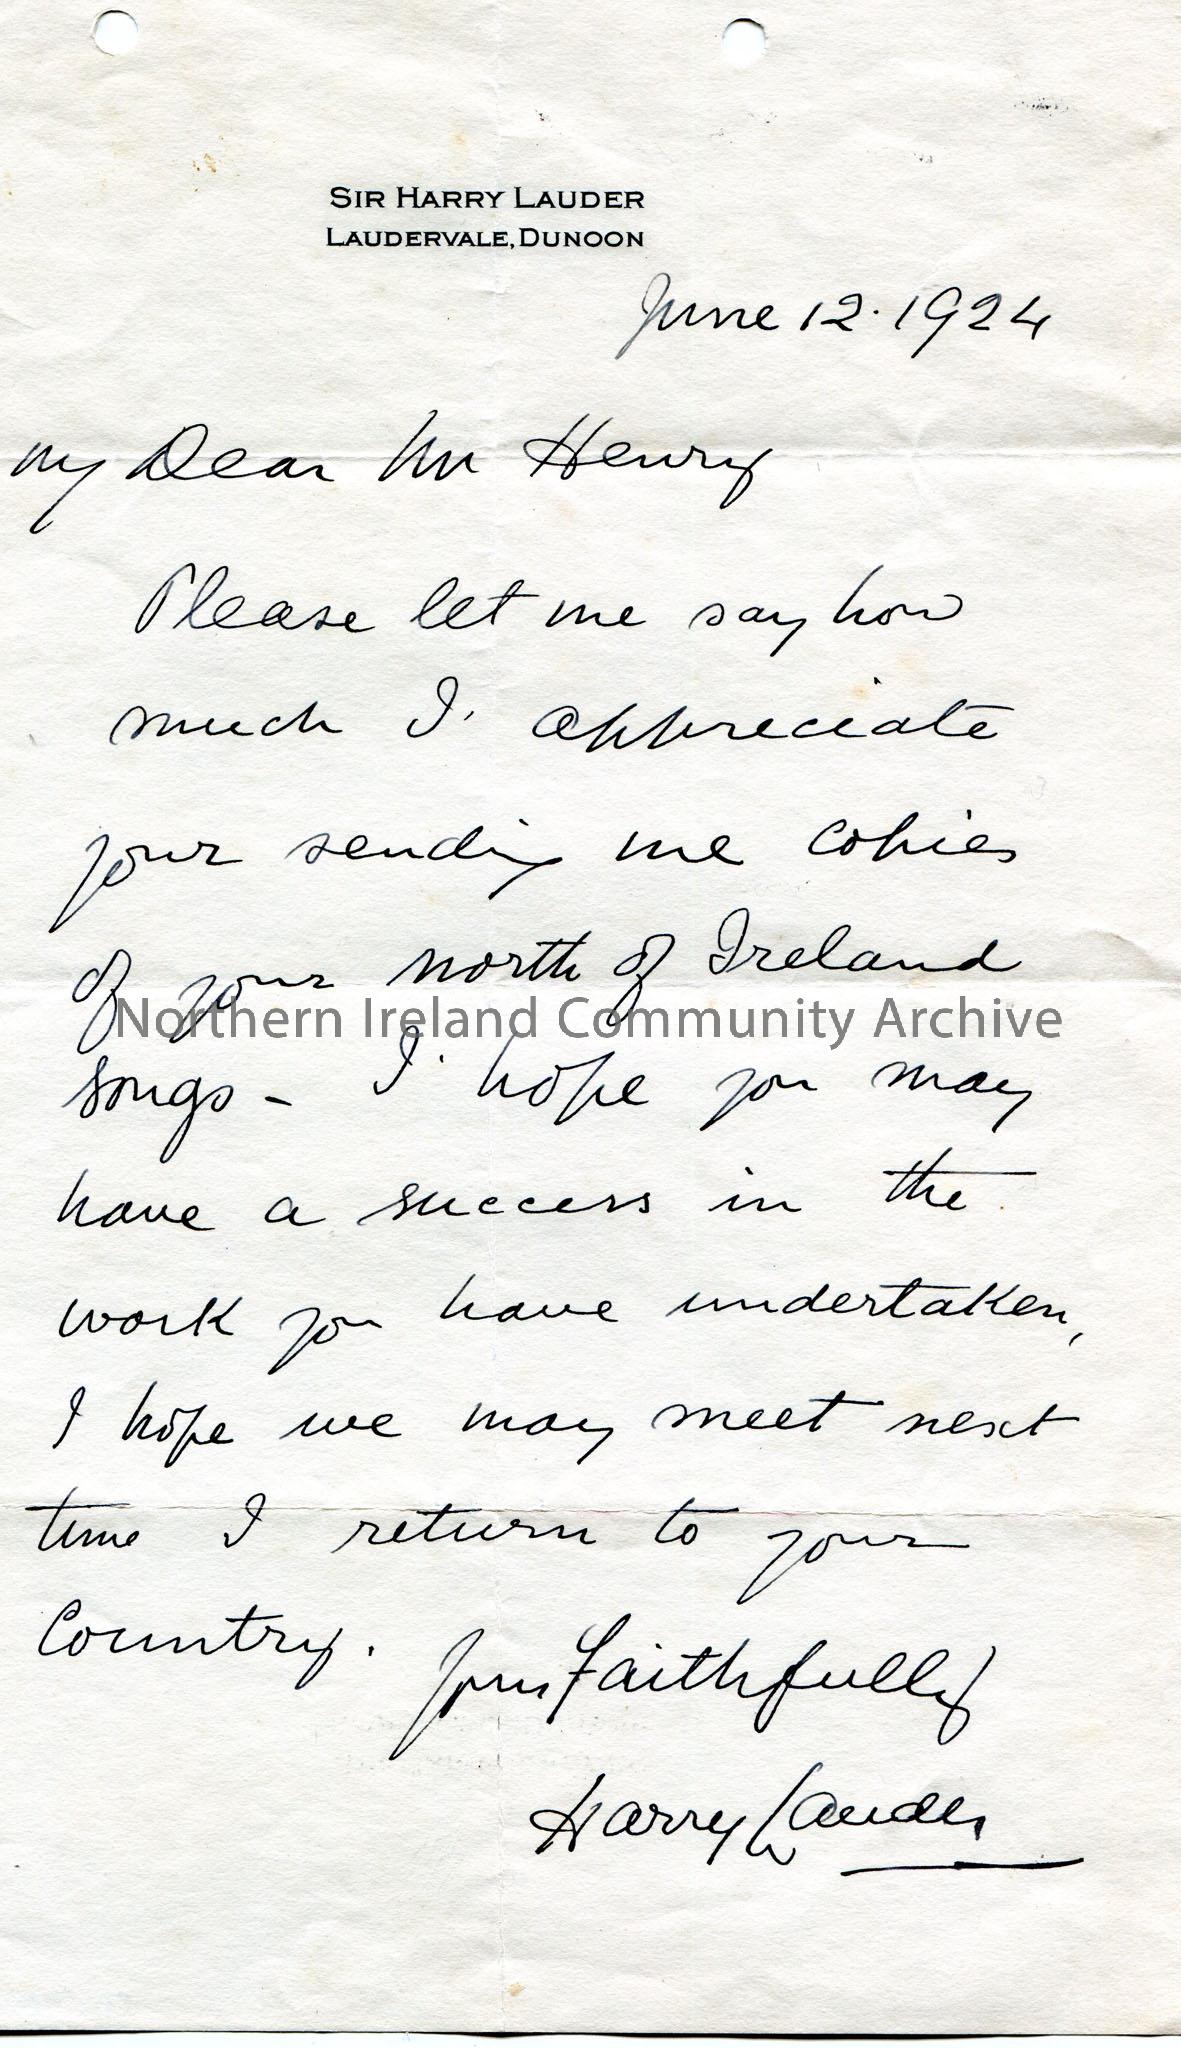 SIR HARRY LAUDER
LAUDERVALE, DUNOON
June 12. 1924
My Dear Mr Henry
Please let me say how
much I appreciate
your sending me copies
of your north of Ireland
Northern Ireland Community Archive
songs - I hope you may
have a success in the
work you have undertaken,
I hope we may meet next
time I return to your
Country. Yours Faithfully
Harry Lauder